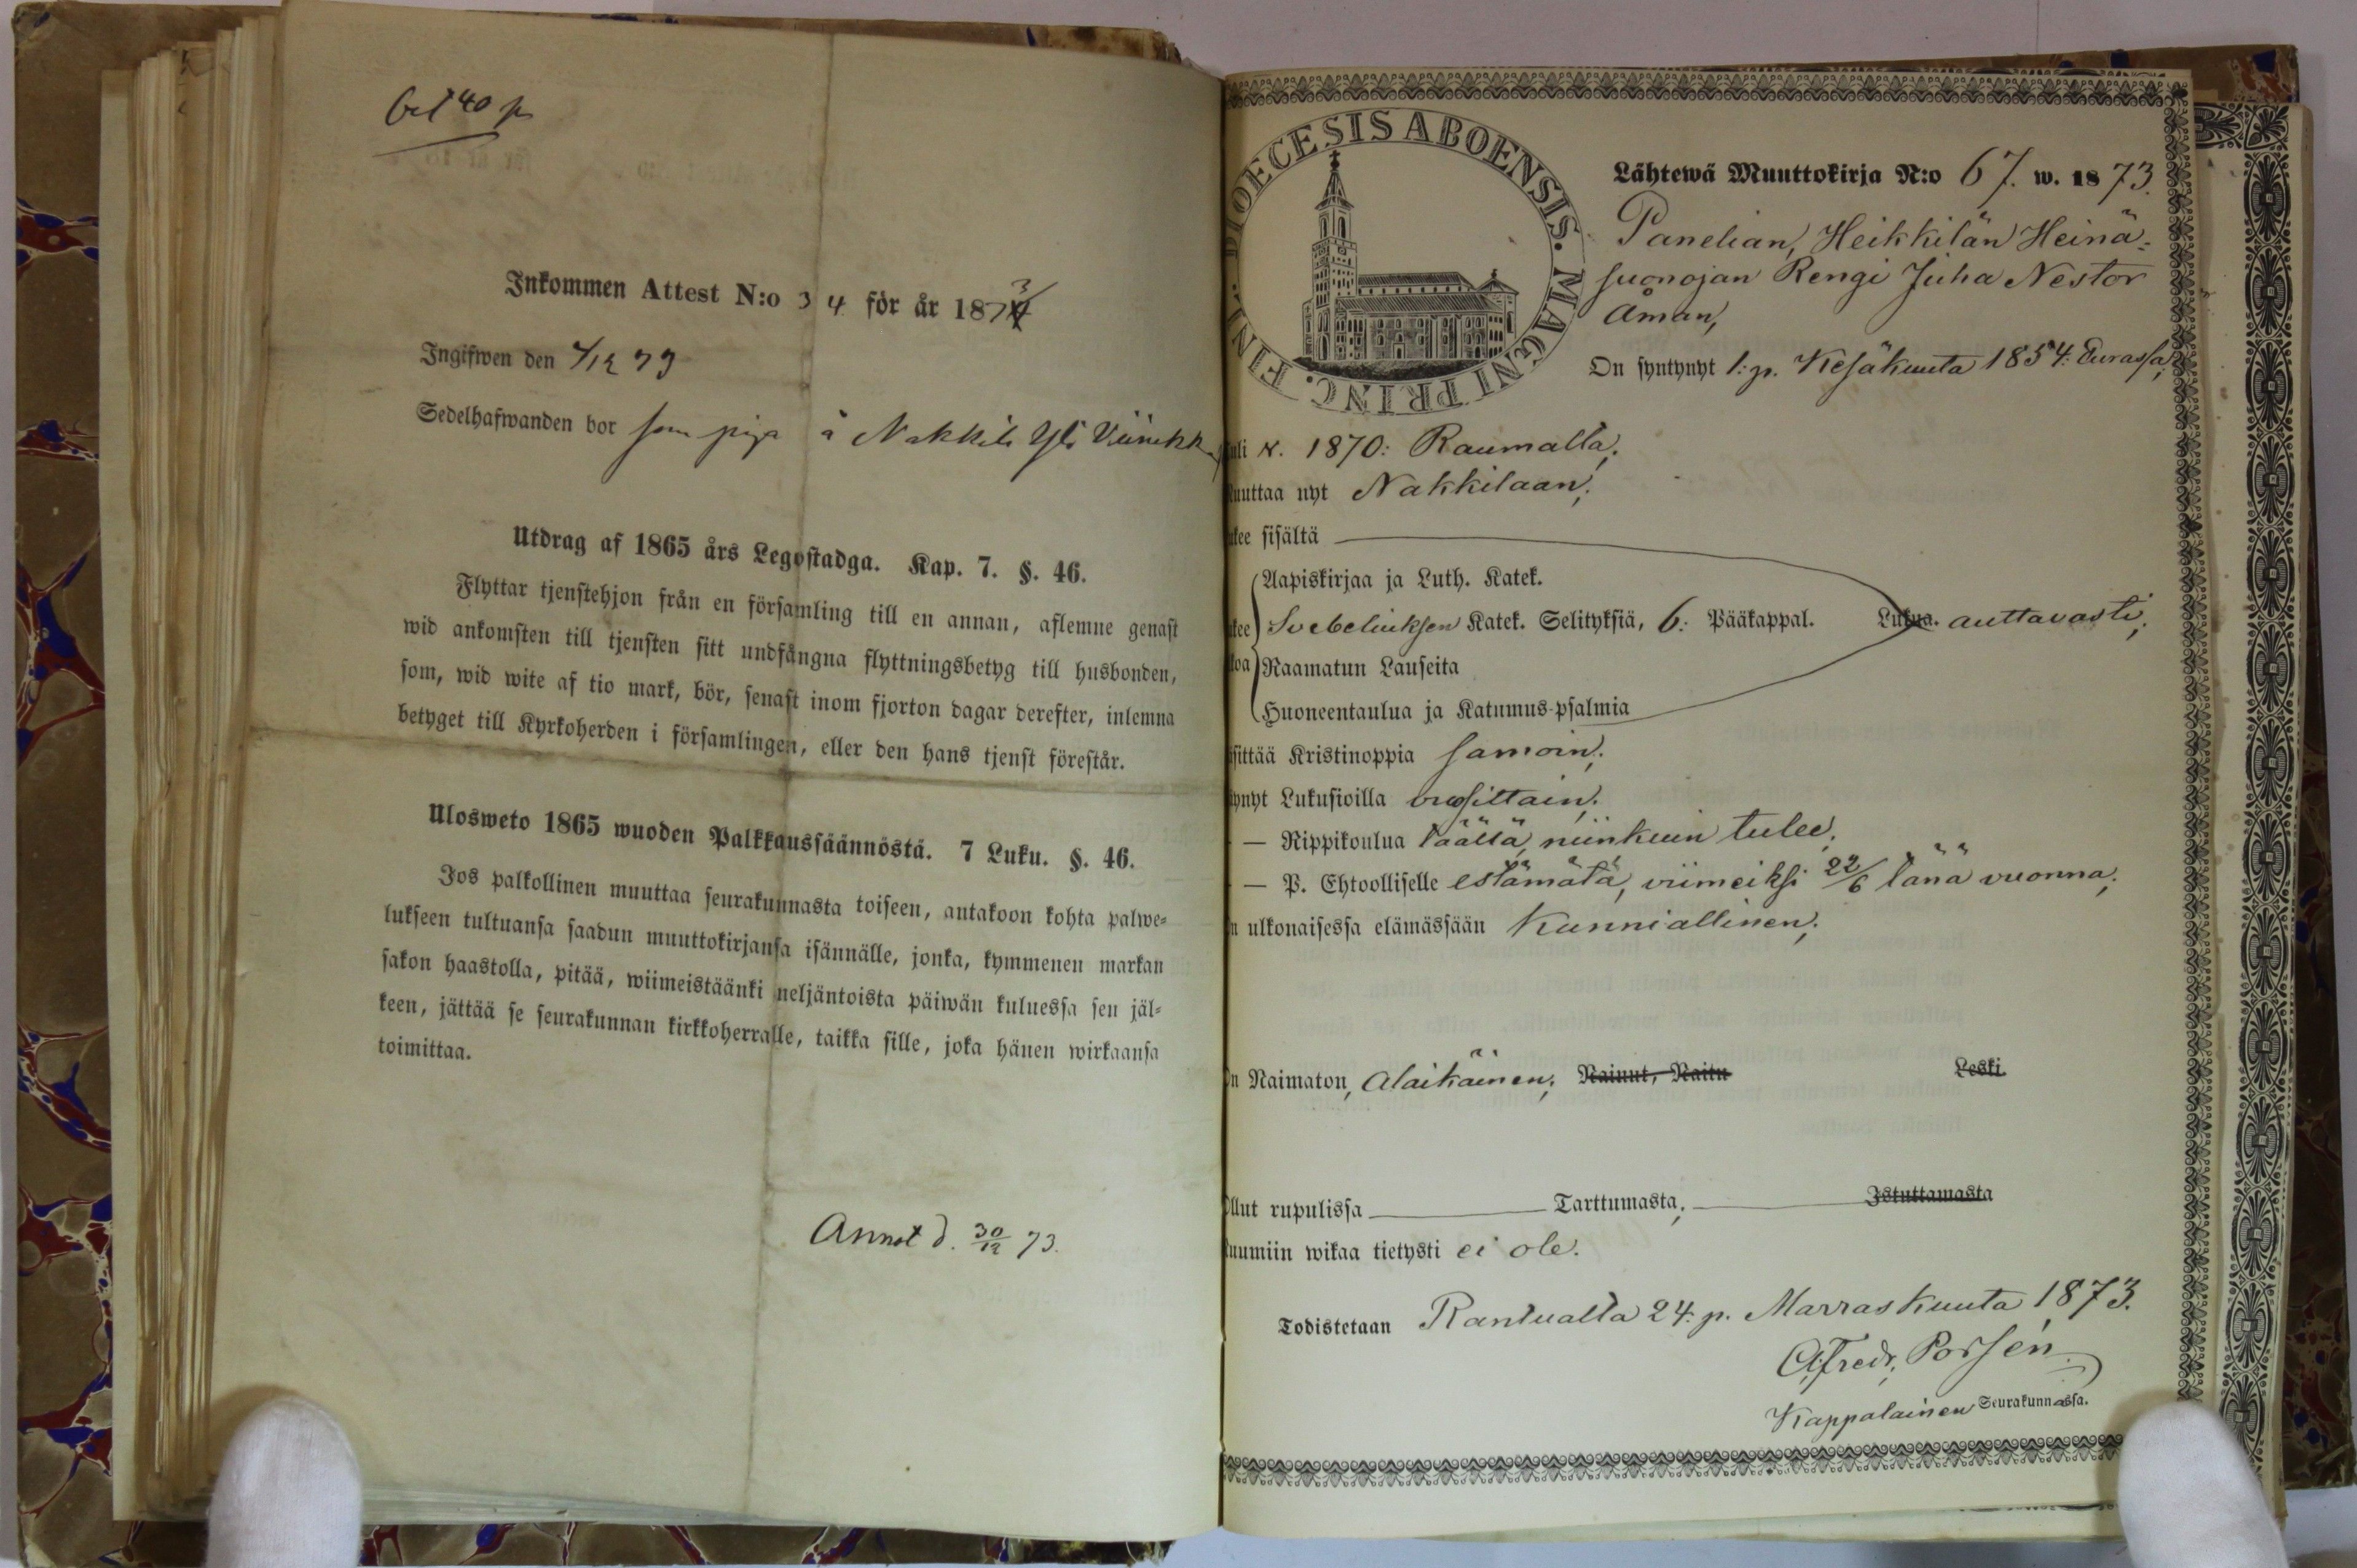 bet 40 p
Inkommen Attest N:o 34 för år 1873
Ingifwen den 4/12 73
Sedelhafwanden bor som piga å Nakkila Yli Viinikka
Utdrag af 1865 års Legostadga. Kap. 7. §. 46.
Flyttar tjenstehjon från en församling till en annan, aflemne genast
wid ankomsten till tjensten sitt undfångna flyttningsbetyg till husbonden,
som, wid wite af tio mark, bör, senast inom fjorton dagar derefter, inlemna
betyget till Kyrkoherden i församlingen, eller den hans tjenst förestår.
Ulosweto 1865 wuoden Palkkaussäännöstä. 7 Luku. §. 46.
Jos palkollinen muuttaa seurakunnasta toiseen, antakoon kohta palwe=
lukseen tultuansa saadun muuttokirjansa isännälle, jonka, kymmenen markan
sakon haastolla, pitää, wiimeistäänki neljäntoista päiwän kuluessa sen jäl=
keen, jättää se seurakunnan kirkkoherralle, taikka sille, joka hänen wirkaansa
toimittaa.
Annot d. 30/12 73.
DIOECESIS ABOENSIS. MAGNI PRINC. FINL.
Lähtewä Muuttokirja N:o 67. w. 1873.
Panelian, Heikkilän Heinä=
suonojan Rengi Juha Nestor
Åman,
On syntynyt 1: p. Kesäkuuta 1854: Eurassa;
uli w. 1870: Raumalta;
uuttaa nyt Nakkilaan;
kee sisältä
Aapiskirjaa ja Luth. Katek.
kee Svebeliuksen Katek. Selityksiä, 6: Pääkappal. Lukua. auttavasti;
koa Raamatun Lauseita
Huoneentaulua ja Katumus-psalmia
sittää Kristinoppia samoin;
ynyt Lukusioilla vuosittain;
— Rippikoulua täällä, niinkuin tulee;
— P. Ehtoolliselle estämätä, viimeiksi 22/6 tänä vuonna;
n ulkonaisessa elämässään Kunniallinen;
On Naimaton, alaikäinen; Nainut, Naitu Leski
Ollut rupulissa Tarttumasta, Istuttamasta
uumiin wikaa tietysti ei ole.
Todistetaan Rantualta 24: p. Marraskuuta 1873.
Alfred, Porsén
Kappalainen Seurakunnassa.